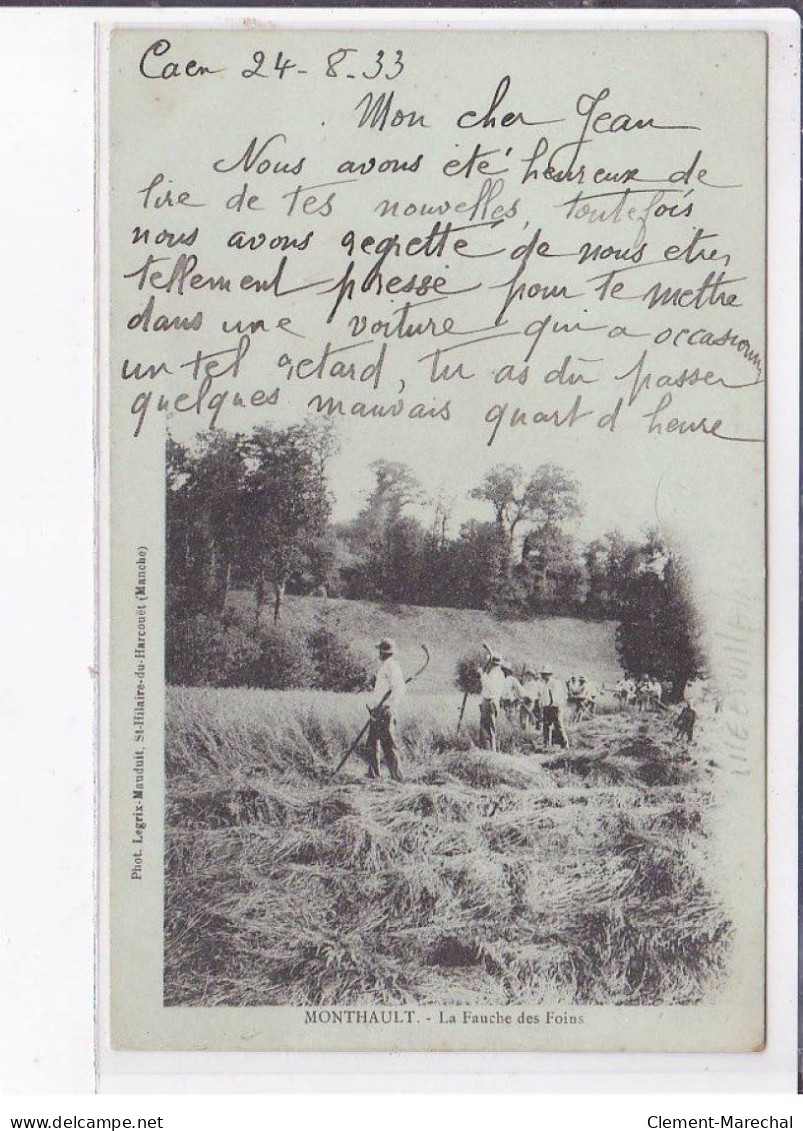 Caen 24-8-33
Mon cher Jean
Nous avons été heureux de
lire de tes nouvelles, toutefois
nous avons regretté de nous etre
tellement pressé pour te mettre
dans une voiture qui a occasionné
un tel retard, tu as dû passer
quelques mauvais quart d'heure
Phot. Legrix-Mauduit, St-Hilaire-du-Harcouët (Manche)
MONTHAULT. - La Fauche des Foins
Clement-Marechal